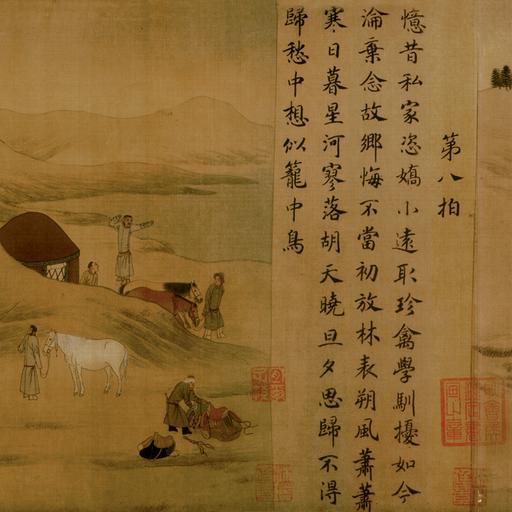 第八拍
憶昔私家恣嬌小遠取珍禽學馴擾如今
淪棄念故鄉悔不當初放林表朔風蕭蕭
寒日暮星河寥落胡天曉旦夕思歸不得
歸愁中想似籠中鳥